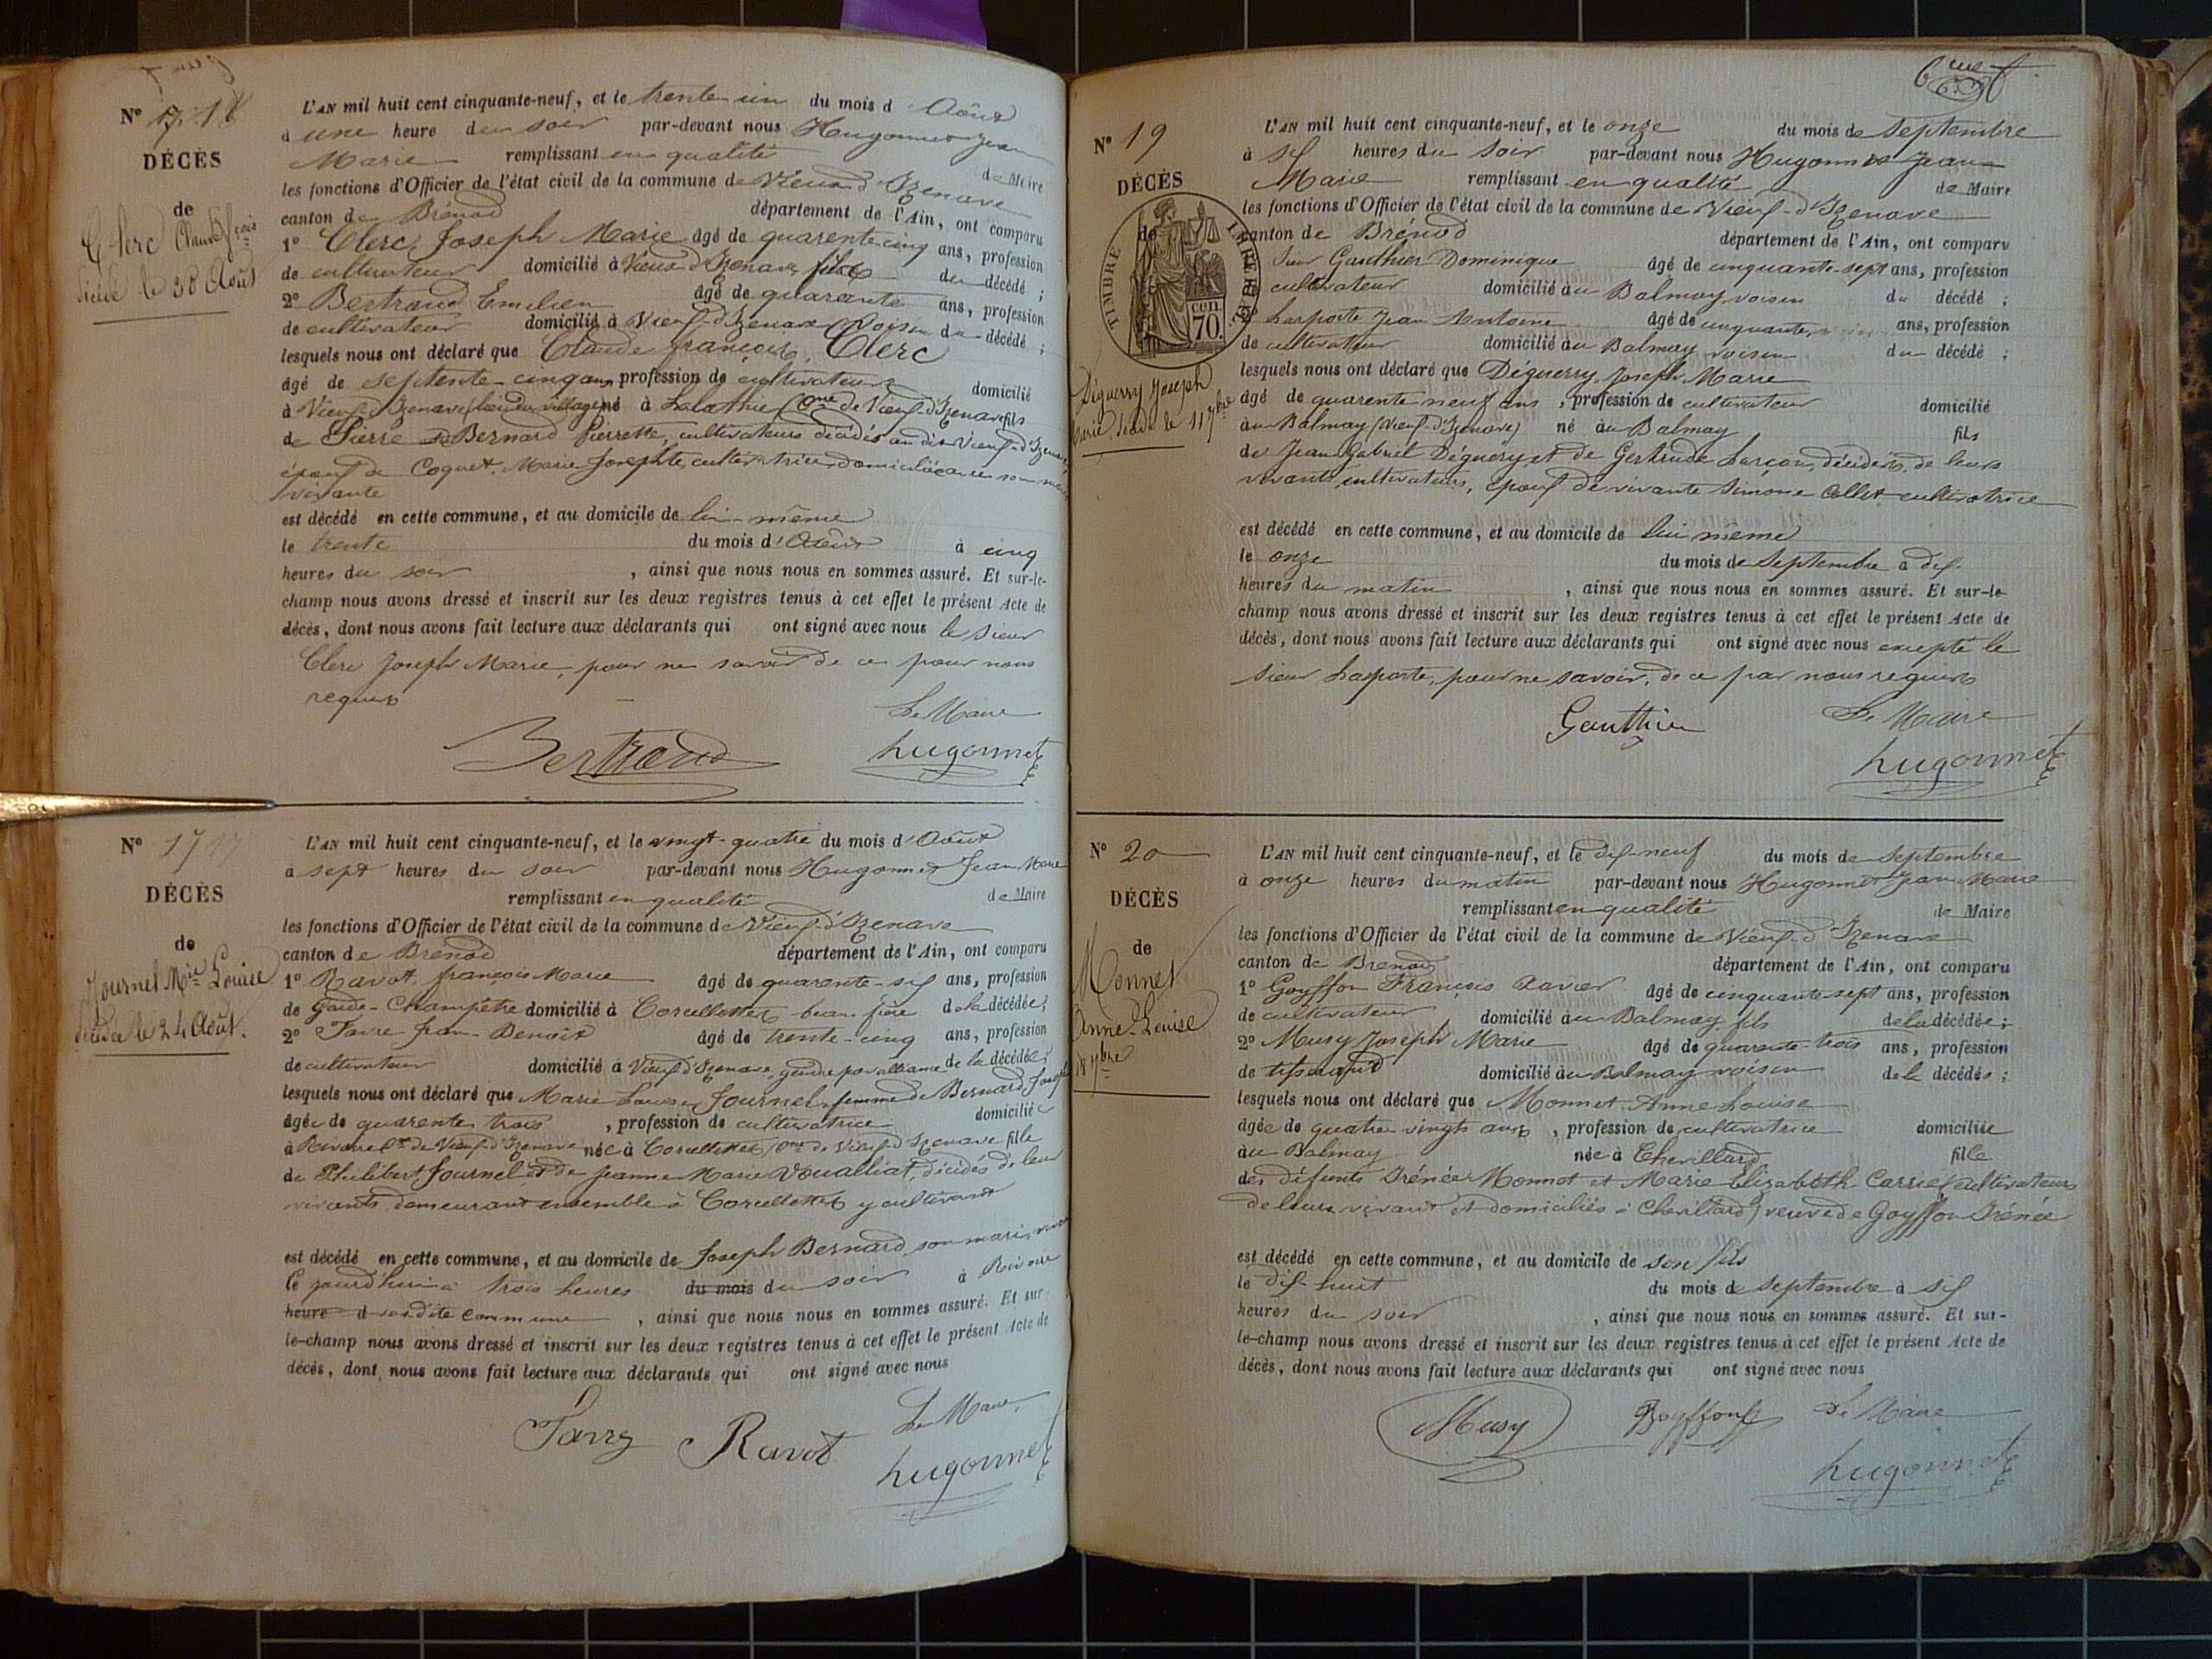 N° 17. 18
DÉCÈS
de
Clerc Claude fçois
décédé le 30 Août
L'AN mil huit cent cinquante-neuf, et le trente-un du mois d Août
à une heure du soir par-devant nous Hugonnet Jean
Marie remplissant en qualité de Maire
les fonctions d'Officier de l'état civil de la commune de Vieux d'Izenave
canton de Brénod département de l'Ain, ont comparu
1° Clerc, Joseph Marie âgé de quarente-cinq ans, profession
de cultivateur domicilié à Vieux d'Izenave, fils du décédé ;
2° Bertrand Emilien âgé de quarante ans, profession
de cultivateur domicilié à Vieux-d'Izenave voisin du décédé ;
lesquels nous ont déclaré que Claude françois, Clerc
âgé de septente-cinq ans, profession de cultivateur domicilié
à Vieux-d'Izenave né à Lalathie Cne de Vieux-d'Izenave fils
de Pierre Bernard Pierrette, cultivateurs décédés au dit Vieux-d'Izenave,
époux de Coquet, Marie Josephte, cultivatrice, domiciliée
vivante
est décédé en cette commune, et au domicile de lui-même
le trente du mois d'Août à cinq
heures du soir , ainsi que nous nous en sommes assuré. Et sur-le-
champ nous avons dressé et inscrit sur les deux registres tenus à cet effet le présent Acte de
décès, dont nous avons fait lecture aux déclarants qui ont signé avec nous le sieur
Clerc Joseph Marie, pour ne savoir de ce par nous
requis
Le Maire
Bertrand hugonnet
N° 17
DÉCÈS
de
Journel Mie Louise
décédée le 24 Août.
L'AN mil huit cent cinquante-neuf, et le vingt-quatre du mois d'Août
à sept heures du soir par-devant nous Hugonnet Jean Marie
remplissant en qualité de Maire
les fonctions d'Officier de l'état civil de la commune de Vieux-d'Izenave
canton de Brénod département de l'Ain, ont comparu
1° Ravot, françois Marie âgé de quarente-six ans, profession
de Garde-Champêtre domicilié à Corcellettes beau-frère de la décédée ;
2° Favre Jean-Benoit âgé de trente-cinq ans, profession
de cultivateur domicilié à Vieux d'Izenave, gendre par alliance de la décédée ;
lesquels nous ont déclaré que Marie Louise Journel, femme de Bernard Joseph
âgée de quarente trois , profession de cultivatrice domiciliée
à Rivoire Cne de Vieux-d'Izenave née à Corcellettes Cne de Vieux d'Izenave fille
de Philibert Journel et de Jeanne Marie Voualliat, décédés de leur
vivants demeurant ensemble à Corcellettes y cultivant
est décédé en cette commune, et au domicile de Joseph Bernard, son mari,
Ce jourd'hui à trois heures du mois du soir à Rivoire
heure d susdite commune , ainsi que nous nous en sommes assuré. Et sur
le-champ nous avons dressé et inscrit sur les deux registres tenus à cet effet le présent Acte de
décès, dont nous avons fait lecture aux déclarants qui ont signé avec nous
Le Maire,
Favre Ravot hugonnet
6me f
N° 19
DÉCÈS
de
TIMBRE IMPERIAL
70. cen
Déguerry Joseph
Marie décédé le 11 7bre
L'AN mil huit cent cinquante-neuf, et le onze du mois de Septembre
à six heures du soir par-devant nous Hugonnet Jean
Marie remplissant en qualité de Maire
les fonctions d'Officier de l'état civil de la commune de Vieux-d'Izenave
canton de Brénod département de l'Ain, ont comparu
Gauthier Dominique âgé de cinquante-sept ans, profession
cultivateur domicilié au Balmay, voisin du décédé ;
Lasporte Jean Antoine âgé de cinquante ans, profession
de cultivateur domicilié au Balmay voisin du décédé ;
lesquels nous ont déclaré que Déguerry, Joseph Marie
âgé de quarente neuf ans , profession de cultivateur domicilié
au Balmay (Vieux-d'Izenave) né au Balmay fils
de Jean Gabriel Déguerry et de Gertrude Larçon, décédés, de leurs
vivants, cultivateurs, époux de vivante Simone Collet cultivatrice
est décédé en cette commune, et au domicile de lui même
le onze du mois de Septembre à dix
heures du matin , ainsi que nous nous en sommes assuré. Et sur-le-
champ nous avons dressé et inscrit sur les deux registres tenus à cet effet le présent Acte de
décès, dont nous avons fait lecture aux déclarants qui ont signé avec nous excepté le
sieur Lasporte, pour ne savoir, de ce par nous requis
Gauthier Le Maire
hugonnet
N° 20
DÉCÈS
de
Monnet
Anne-Louise
18 7bre
L'AN mil huit cent cinquante-neuf, et le dix-neuf du mois de Septembre
à onze heures du matin par-devant nous Hugonnet Jean Marie
remplissant en qualité de Maire
les fonctions d'Officier de l'état civil de la commune de Vieux-d'Izenave
canton de Brénod département de l'Ain, ont comparu
1° Goyffon François Xavier âgé de cinquante sept ans, profession
de cultivateur domicilié au Balmay, fils de la décédée ;
2° Musy Joseph Marie âgé de quarente trois ans, profession
de tisserand domicilié au Balmay voisin de la décédée ;
lesquels nous ont déclaré que Monnet Anne Louise
âgée de quatre vingts ans , profession de cultivatrice domiciliée
au Balmay née à Chevillard fille
des défunts Irénée Monnet et Marie Elizabeth Carrier cultivateurs
de leurs vivant et domiciliés à Chevillard, veuve de Goyffon Irénée
est décédé en cette commune, et au domicile de son fils
le dix-huit du mois de Septembre à six
heures du soir , ainsi que nous nous en sommes assuré. Et sur-
le-champ nous avons dressé et inscrit sur les deux registres tenus à cet effet le présent Acte de
décès, dont nous avons fait lecture aux déclarants qui ont signé avec nous
Musy Goyffon Le Maire
hugonnet